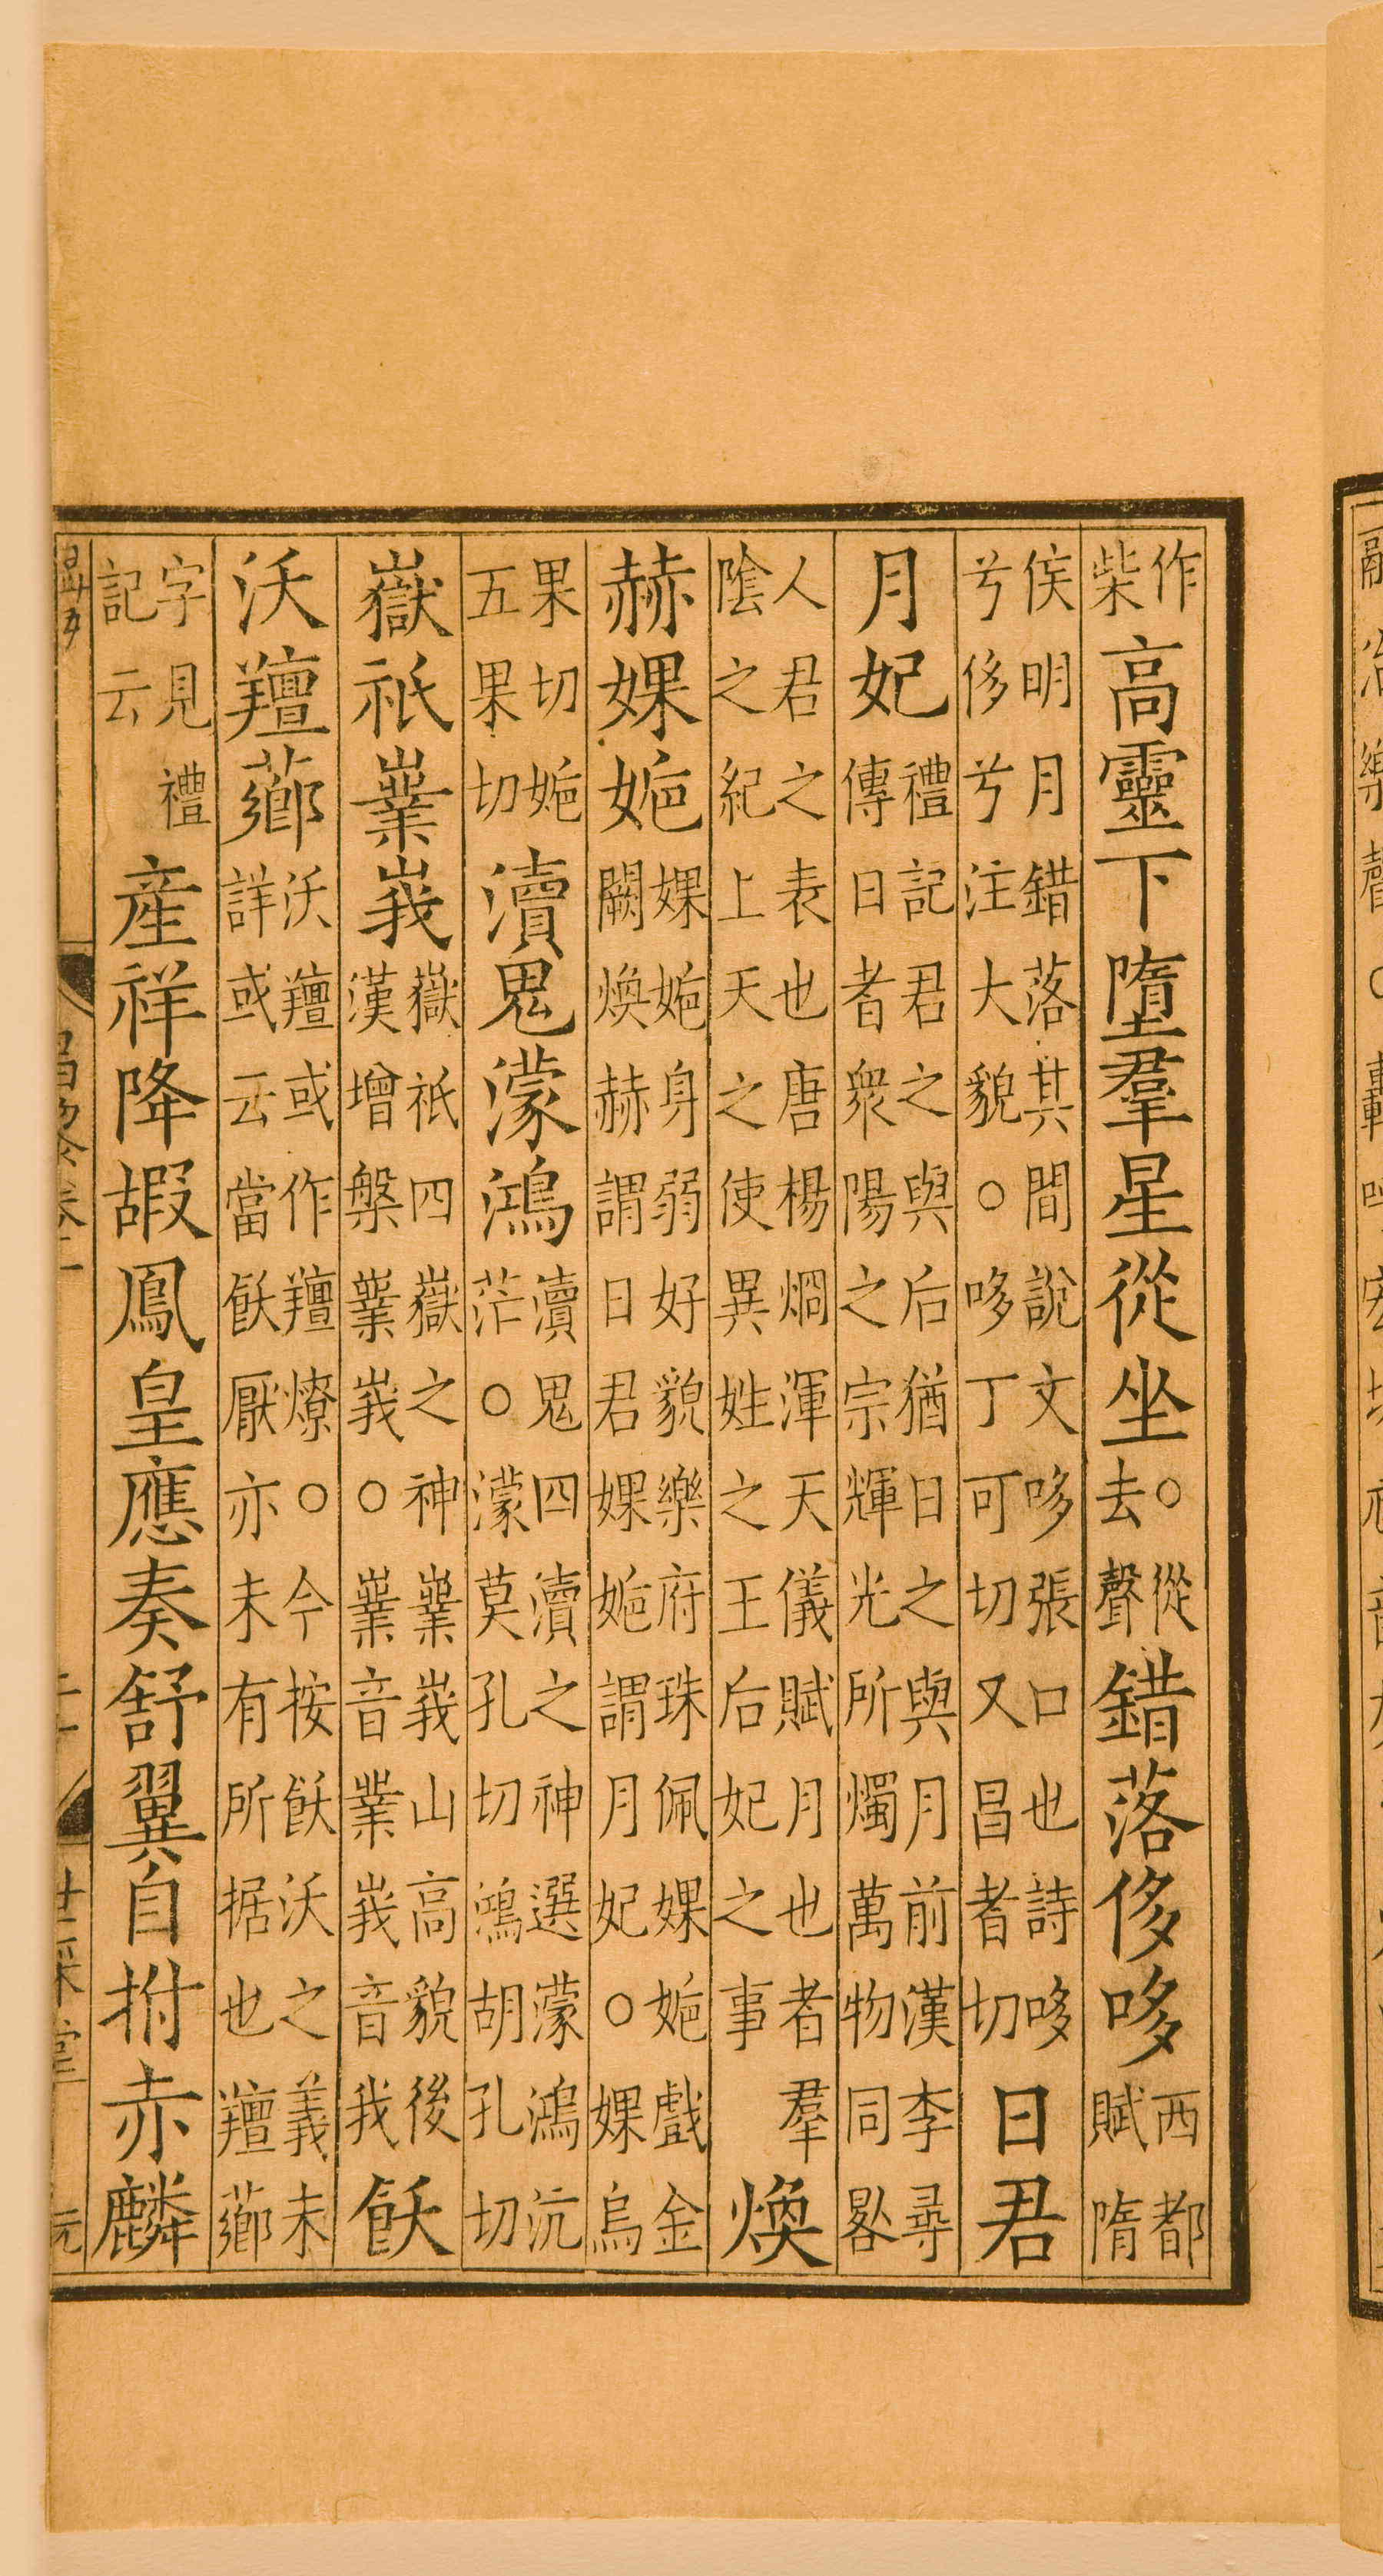 作柴高靈下墮羣星從坐○從去聲錯落侈哆西都賦隋
侯明月錯落其間說文哆張口也詩哆兮侈兮注大貌○哆丁可切又昌者切日君
月妃禮記君之與后猶日之與月前漢李尋傳日者衆陽之宗輝光所燭萬物同晷
人君之表也唐楊烱渾天儀賦月也者羣陰之紀上天之使異姓之王后妃之事煥
赫婐姤婐姤身弱好貌樂府珠佩婐姤戲金闕煥赫謂日君婐姤謂月妃○婐烏
果切姤五果切瀆鬼濛鴻瀆鬼四瀆之神選濛鴻沆茫○濛莫孔切鴻胡孔切
嶽祇嶪峩嶽祇四嶽之神嶪峩山高貌後漢增槃嶪峩○嶪音業峩音我飫
沃羶薌沃羶或作羶燎○今按飫沃之義未詳或云當飫厭亦未有所据也羶薌
字見禮記云產祥降嘏鳳皇應奏舒翼自拊赤麟
昌黎卷二